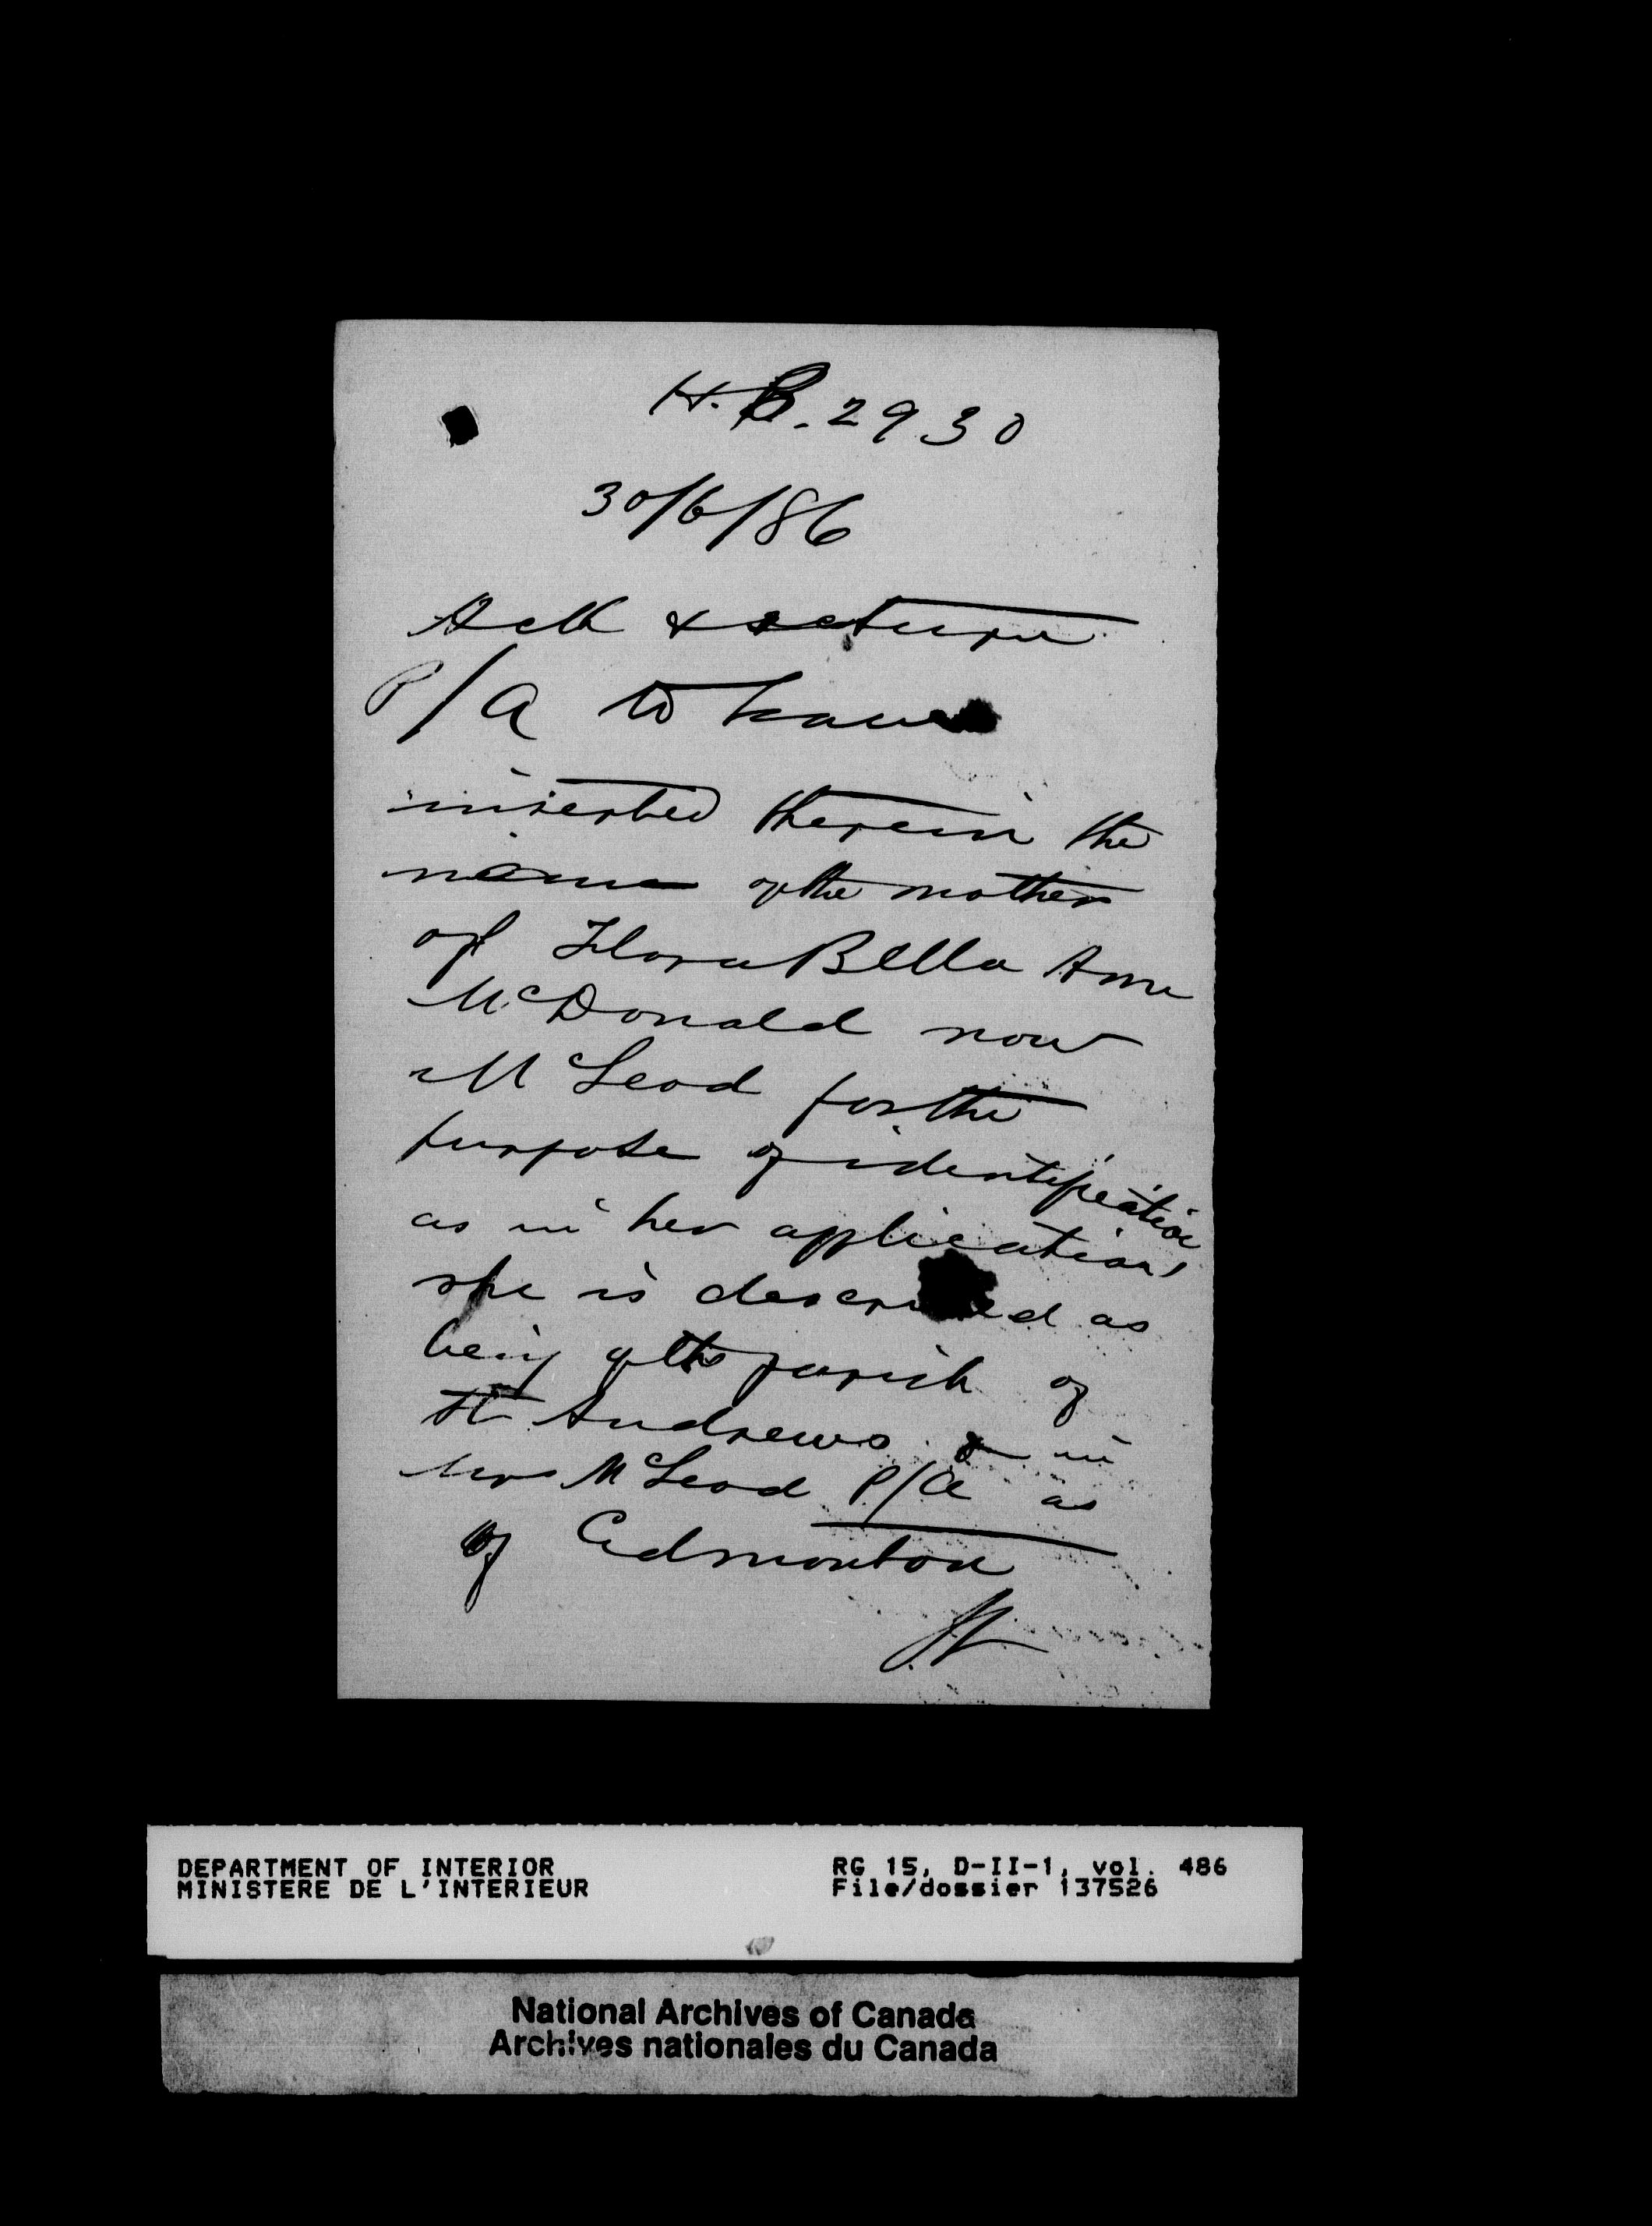 H.B. 2930
30/6/86
Ack & return
P/A to have
inserted therein the
name of the mother
of Flora Bella Ann
McDonald now
McLeod for the
purpose of identification
as in her application
she is described as
being of the parish of
St Andrews & in
Mrs McLeod P/A as
of Edmonton
DEPARTMENT OF INTERIOR
MINISTERE DE L'INTERIEUR
RG 15, D-II-1, vol. 486
File/dossier 137526
National Archives of Canada
Archives nationales du Canada